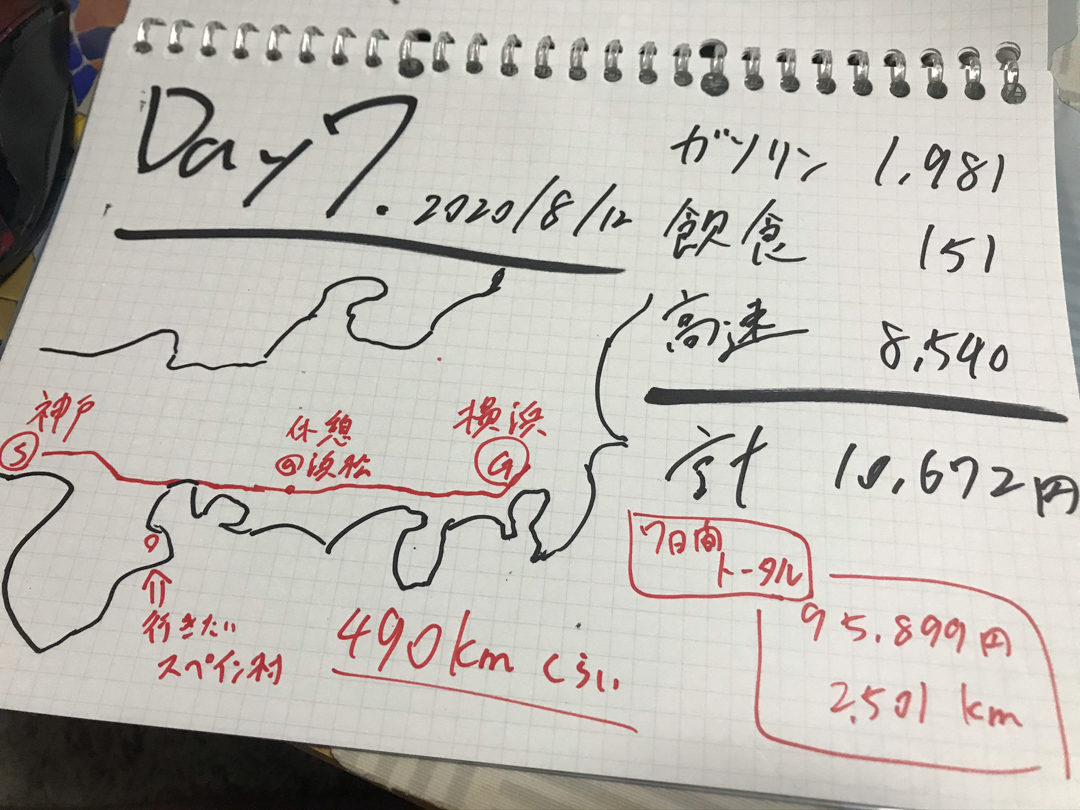 Day 7. 2020/8/12
ガソリン 1,981
飲食 151
高速 8,540
計 10,672円
神戸
S
休憩
@浜松
横浜
G
行きたい
スペイン村
490km くらい
7日間
トータル
95,899円
2,501 km